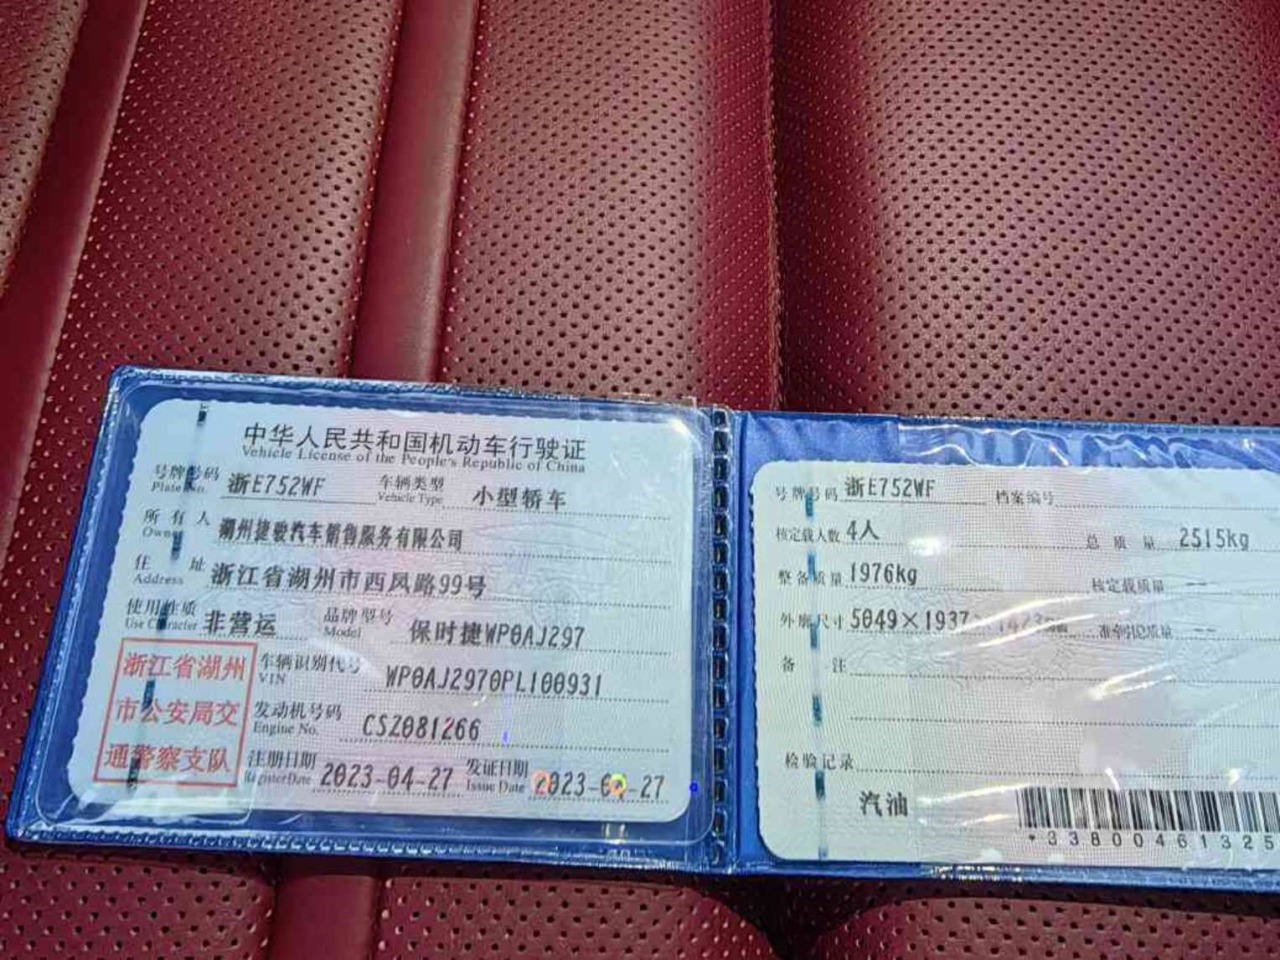 中华人民共和国机动车行驶证
Vehicle License of the People's Republic of China
号牌号码 浙E752WF 车辆类型 小型轿车
Plate No. Vehicle Type
所有人 湖州捷骏汽车销售服务有限公司
Owner
住址 浙江省湖州市西凤路99号
Address
使用性质 非营运 品牌型号 保时捷WP0AJ297
Use Character Model
浙江省湖州
市公安局交
通警察支队
车辆识别代号 WP0AJ2970PL100931
VIN
发动机号码 CSZ081266
Engine No.
注册日期 2023-04-27 发证日期 2023-04-27
Register Date Issue Date
号牌号码 浙E752WF 档案编号
核定载人数 4人 总质量 2515kg
整备质量 1976kg 核定载质量 --
外廓尺寸 5049×1937× 准牵引总质量 --
备注
检验记录
汽油
*33800461325